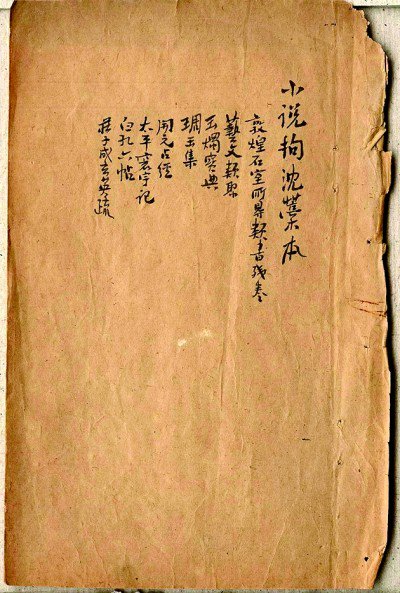 小说鉤沈藁本
敦煌石室所㝵類書残卷
藝文類聚
玉燭寶典
琱玉集
開元占經
太平寰宇記
白孔六帖
莊子成玄英疏